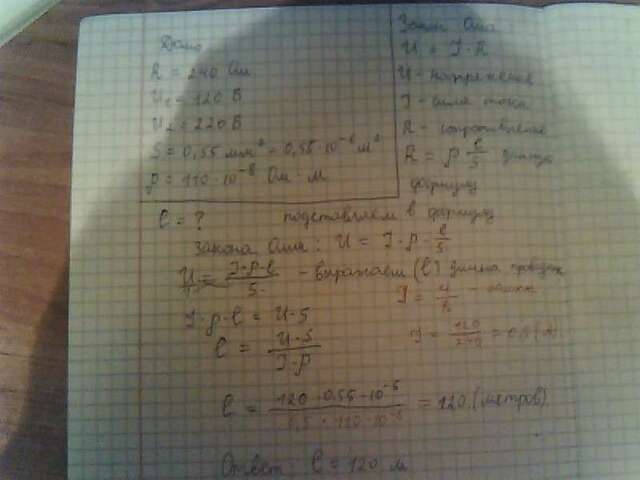 Дано
R = 240 Ом
U₁ = 120 В
U₂ = 220 В
S = 0,55 мм² = 0,55·10⁻⁶ м²
ρ = 110·10⁻⁸ Ом·м
l = ?
Закон Ома
U = I·R
U - напряжение
I - сила тока
R - сопротивление
R = ρ l/S данную
формулу
подставляем в формулу
закона Ома: U = I·ρ·l/S
U = I·ρ·l/S - выражаем (l)
I·ρ·l = U·S
l = U·S/I·ρ
I = U/R
I = 120/240 = 0,5 (А)
l = 120·0,55·10⁻⁶/0,5·110·10⁻⁸ = 120 (метров)
Ответ: l = 120 м